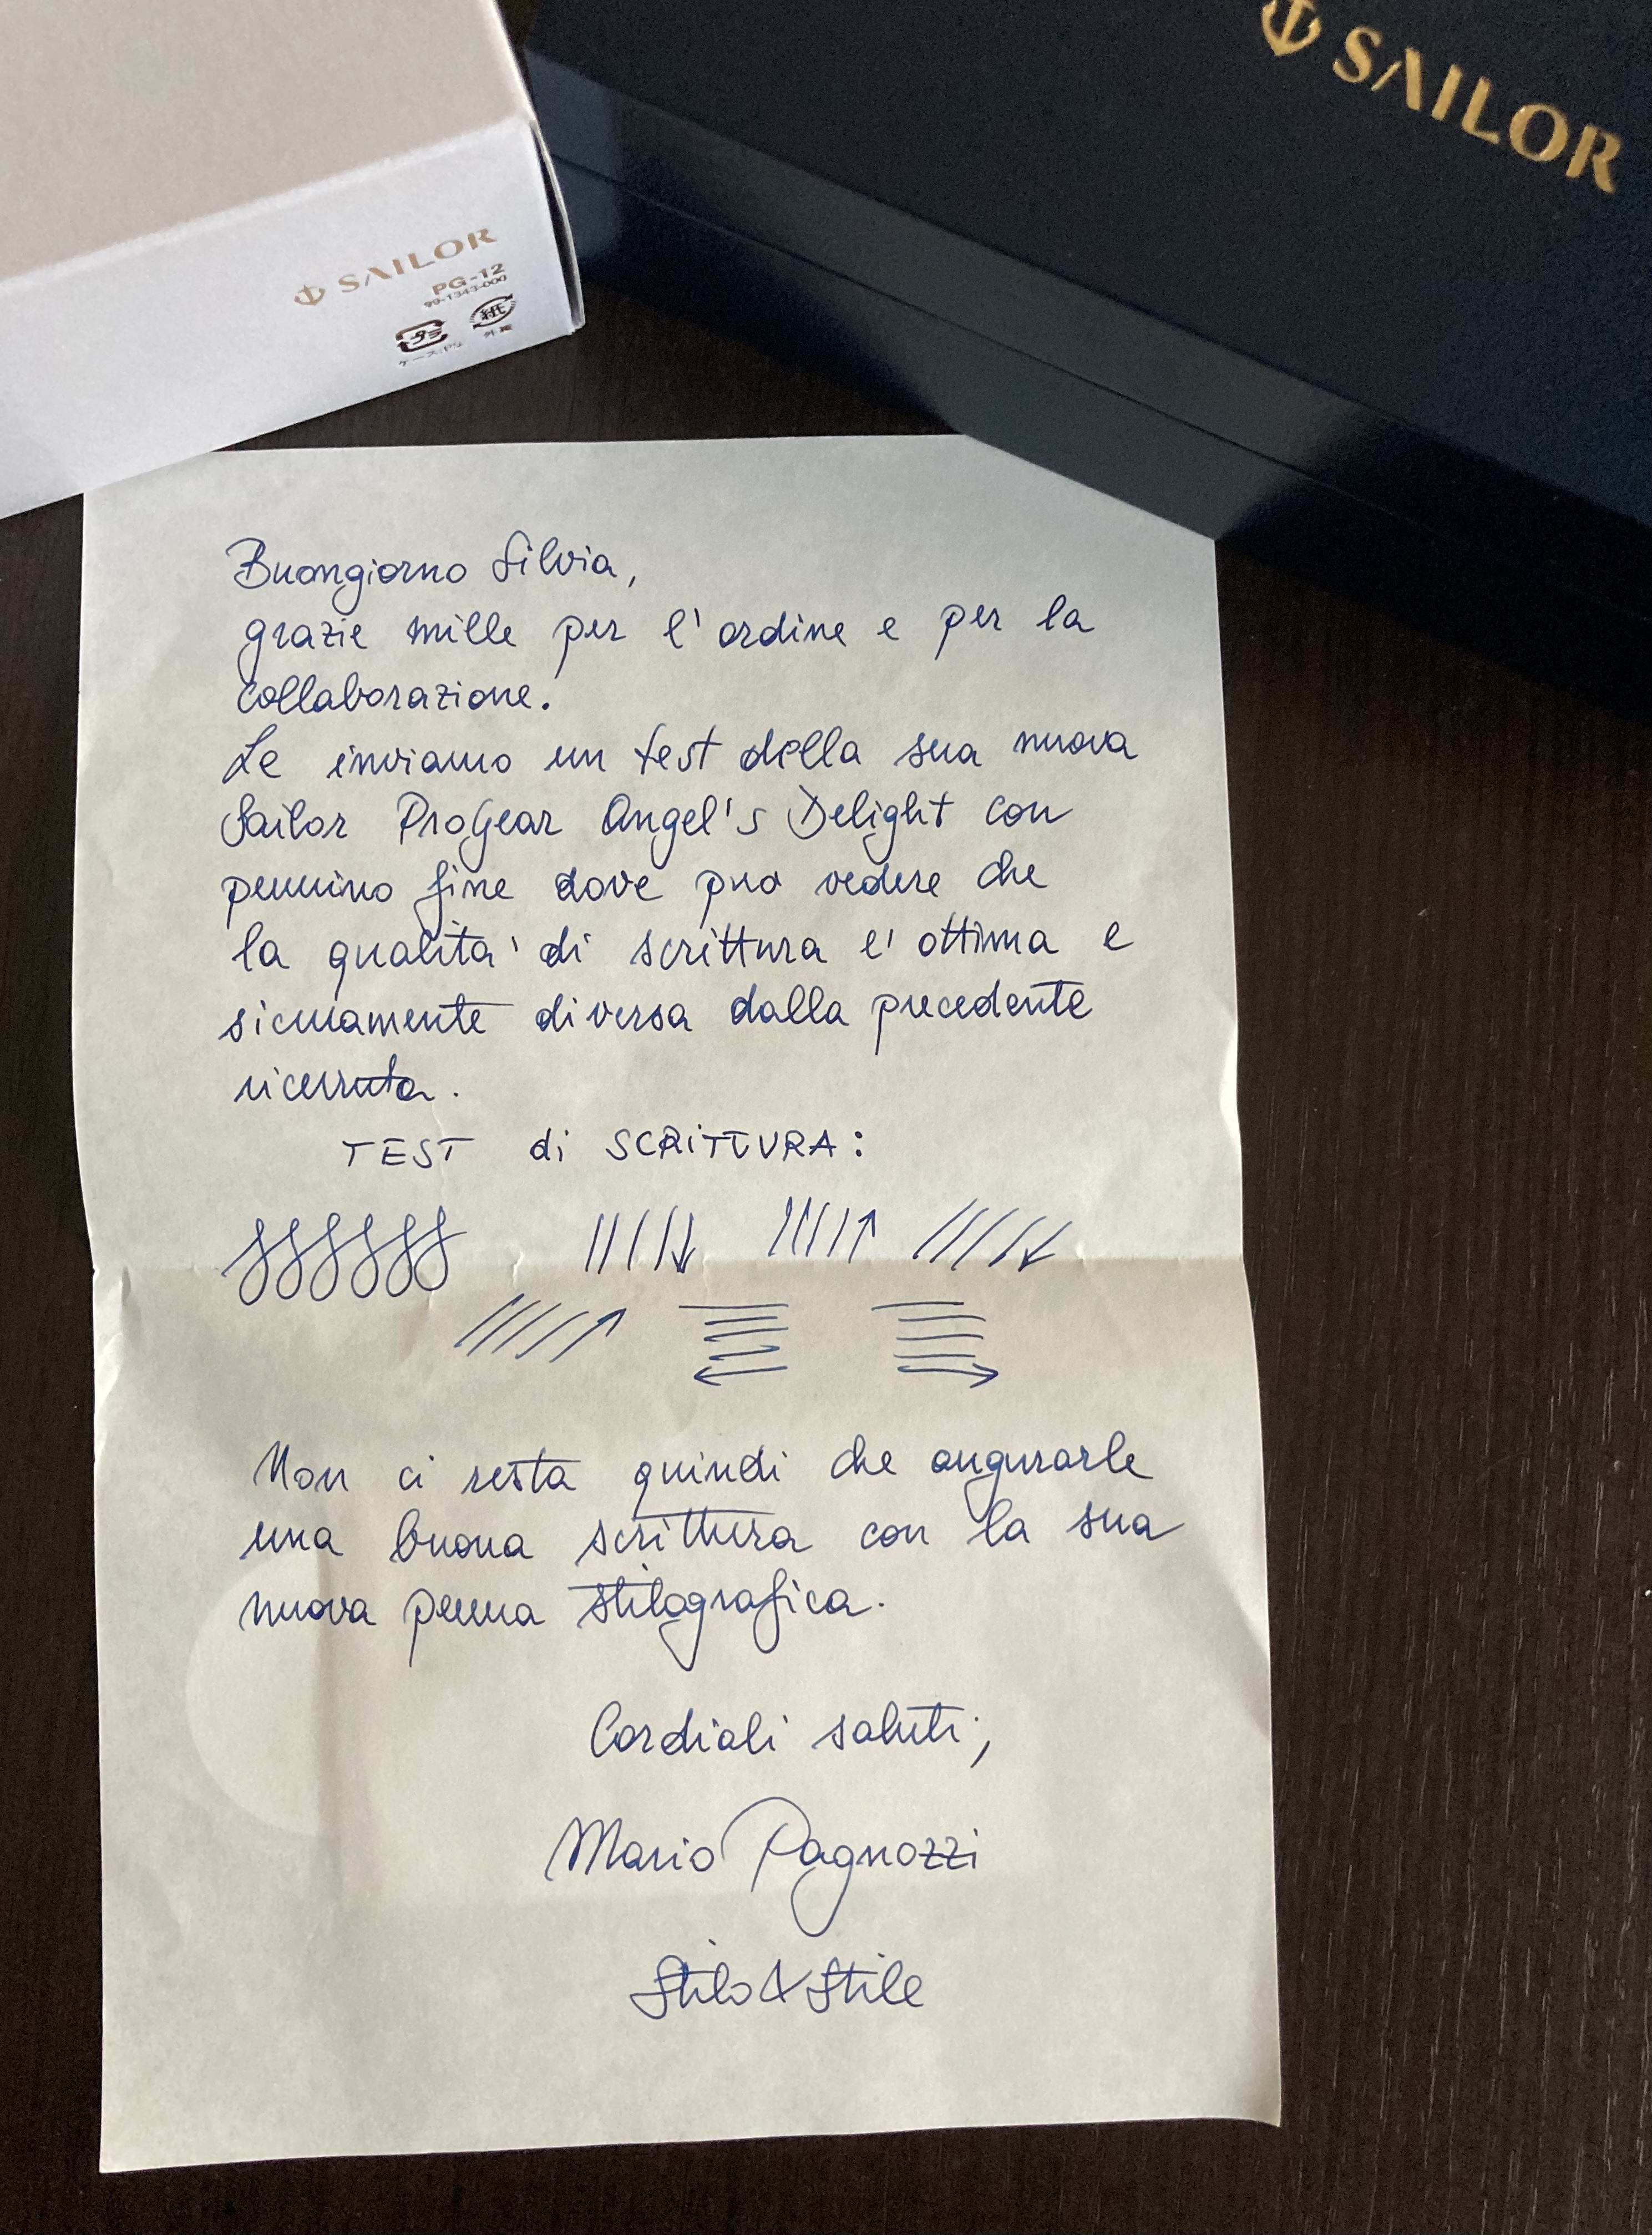 SAILOR
SAILOR
PG-12
99-1343-000
プラ
紙
ケース:PS
外箱
Buongiorno Silvia,
grazie mille per l'ordine e per la
collaborazione.
Le inviamo un test della sua nuova
Sailor ProGear Angel's Delight con
pennino fine dove può vedere che
la qualita' di scrittura e' ottima e
sicuramente diversa dalla precedente
ricevuta.
TEST di SCRITTURA:
Non ci resta quindi che augurarle
una buona scrittura con la sua
nuova penna stilografica.
Cordiali saluti,
Mario Pagnozzi
Stilo&Stile